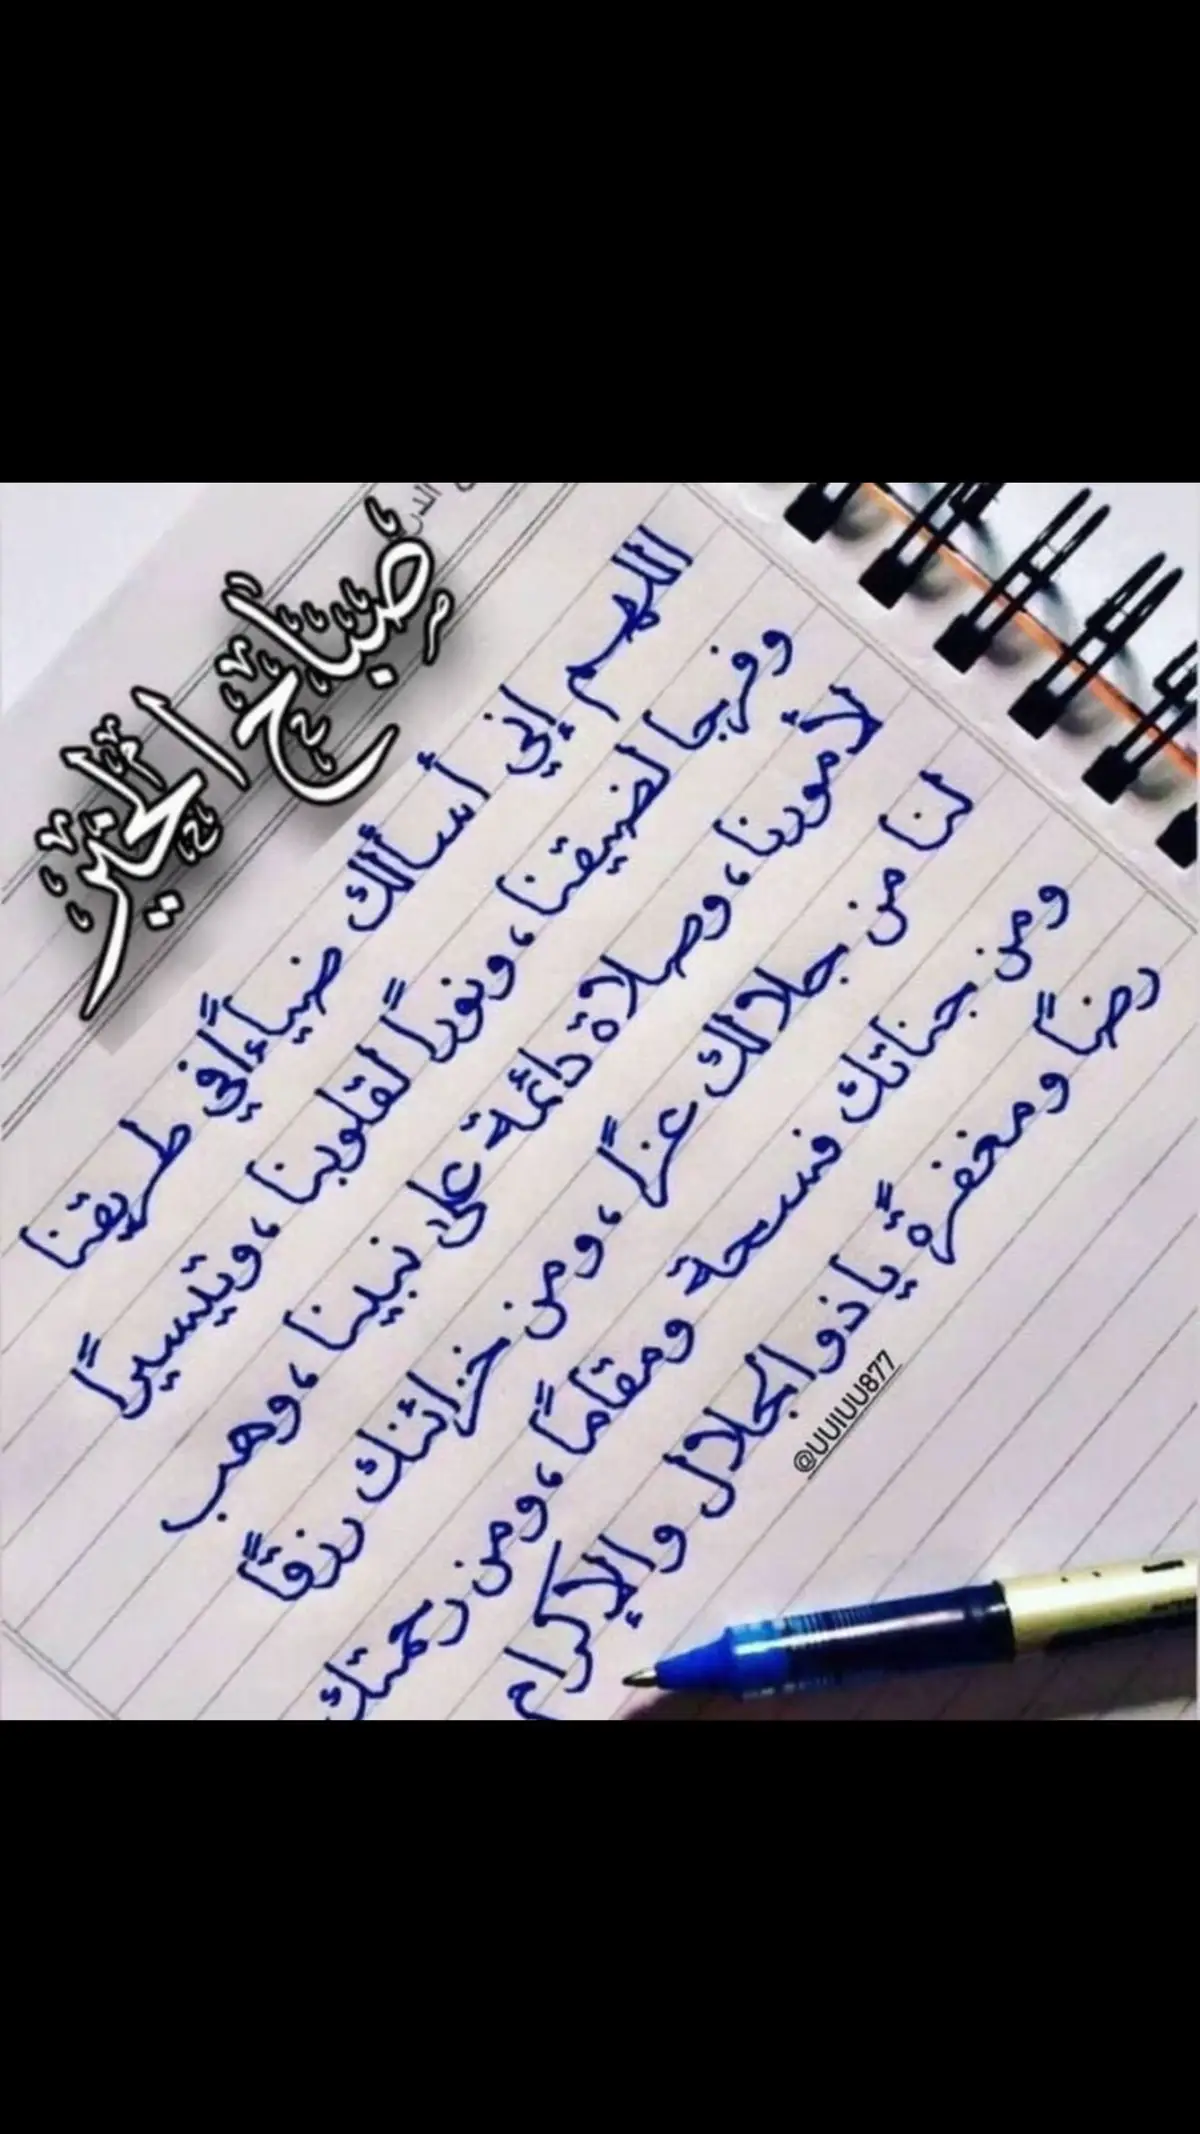 صباح الخير
اللهم إني أسألك ضياءً في طريقنا
وفرجا لضيقنا، ونوراً لقلوبنا، وتيسيراً
لأمورنا، وصلاة دائمة على نبينا، وهب
لنا من جلالك عزاً، ومن خزائنك رزقاً
ومن جناتك فسحة ومقاماً، ومن رحمتك
رضاً ومغفرةً يا ذو الجلال والإكرام
@UUIUU877